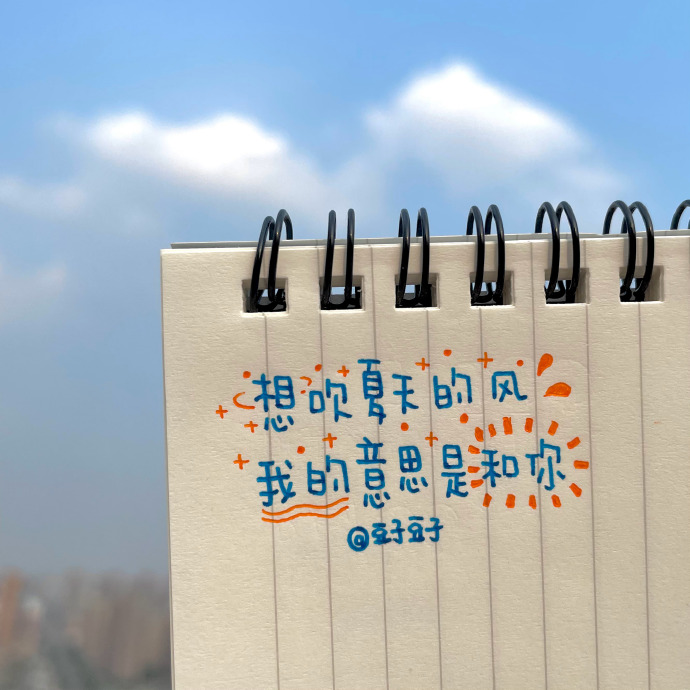 想吹夏天的风
我的意思是和你
@豆子豆子